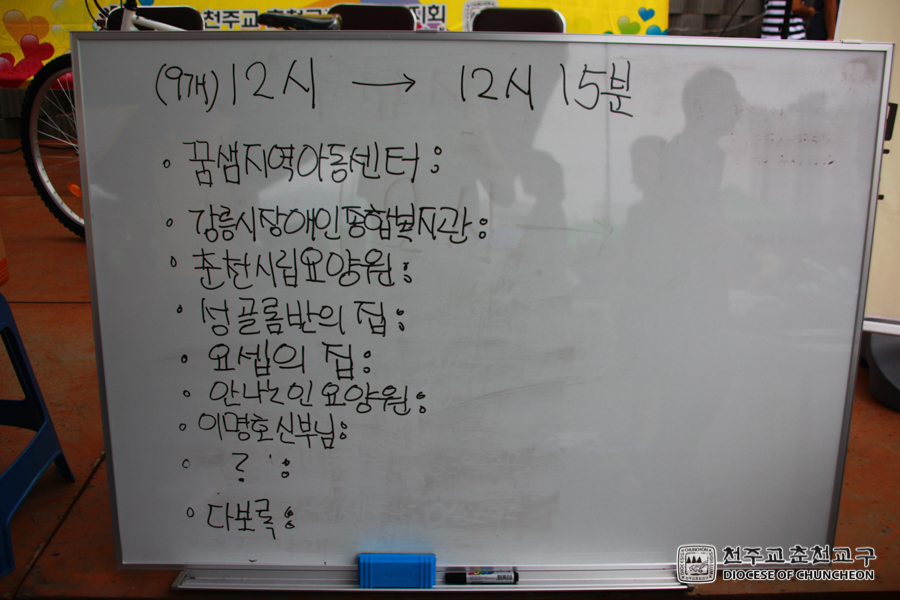 천주교
(9개) 12시 → 12시 15분
• 꿈샘지역아동센터:
• 강릉시장애인종합복지관:
• 춘천시립요양원:
• 성골롬반의 집:
• 요셉의 집:
• 안나노인요양원:
• 이명호신부님:
• ? :
• 다보록:
천주교 춘천교구
DIOCESE OF CHUNCHEON